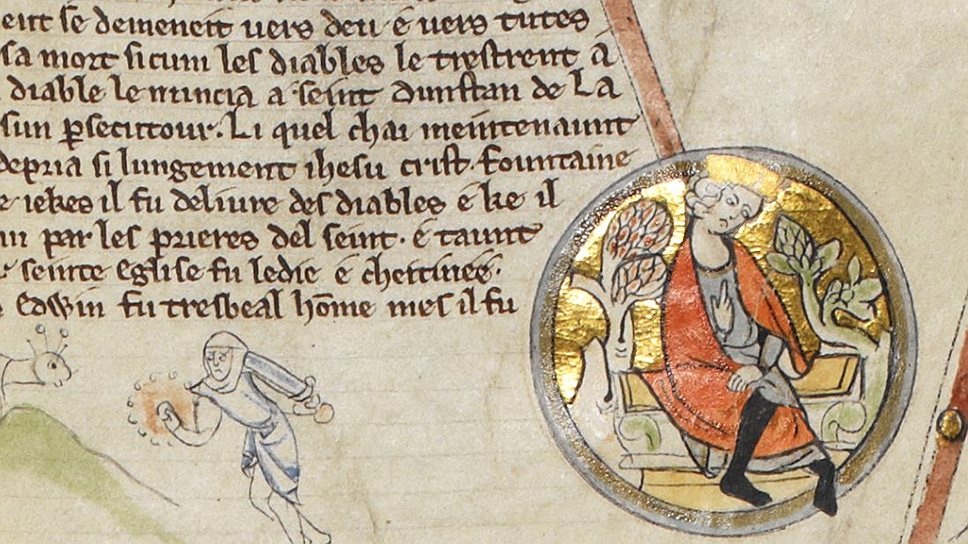 eit se demeneit uers deu e uers tutes
sa mort si cum les diables le trestrent a
diable le nuncia a seint dunstan de La
sun psecutour. Li quel chai meintenaunt
depria si lungement ihesu crist. fountaine
e iekes il fu deliure des diables e ke il
par les prieres del seint. e taunt
seinte eglise fu ledie e cheitiuee.
edwin fu tresbeal home mes il fu